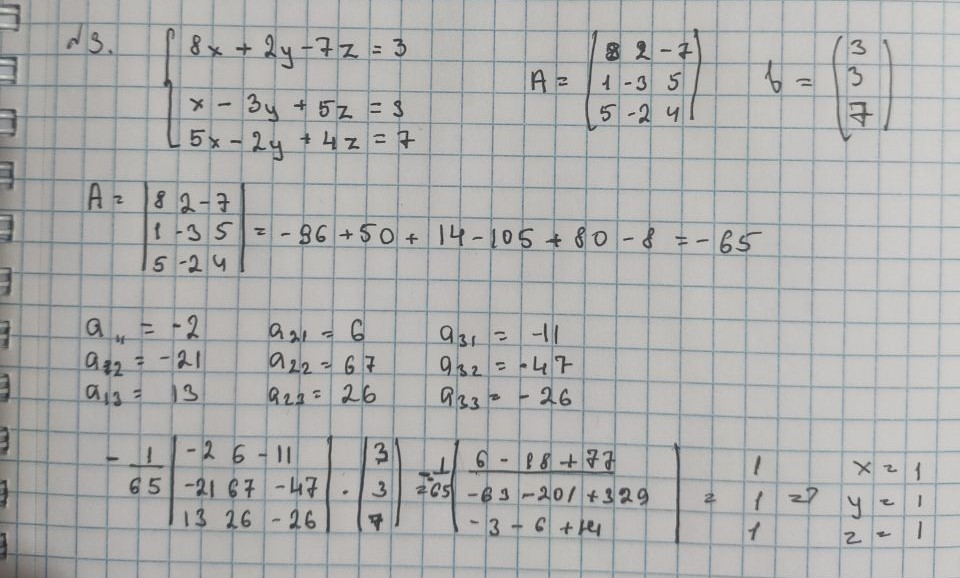 №3. 8x + 2y - 7z = 3
x - 3y + 5z = 3
5x - 2y + 4z = 7
A = 8 2 -7
1 -3 5
5 -2 4
b = 3
3
7
A = 8 2 -7
1 -3 5
5 -2 4
= -96 + 50 + 14 - 105 + 80 - 8 = -65
a₁₁ = -2 a₂₁ = 6 a₃₁ = -11
a₁₂ = -21 a₂₂ = 67 a₃₂ = -47
a₁₃ = 13 a₂₃ = 26 a₃₃ = -26
- 1/65 | -2 6 -11 | · | 3 | = - 1/65 | 6 - 18 + 77 | = 1 => x = 1
| -21 67 -47 | | 3 | | -63 - 201 + 329 | 1 y = 1
| 13 26 -26 | | 7 | | -3 - 6 + 14 | 1 z = 1